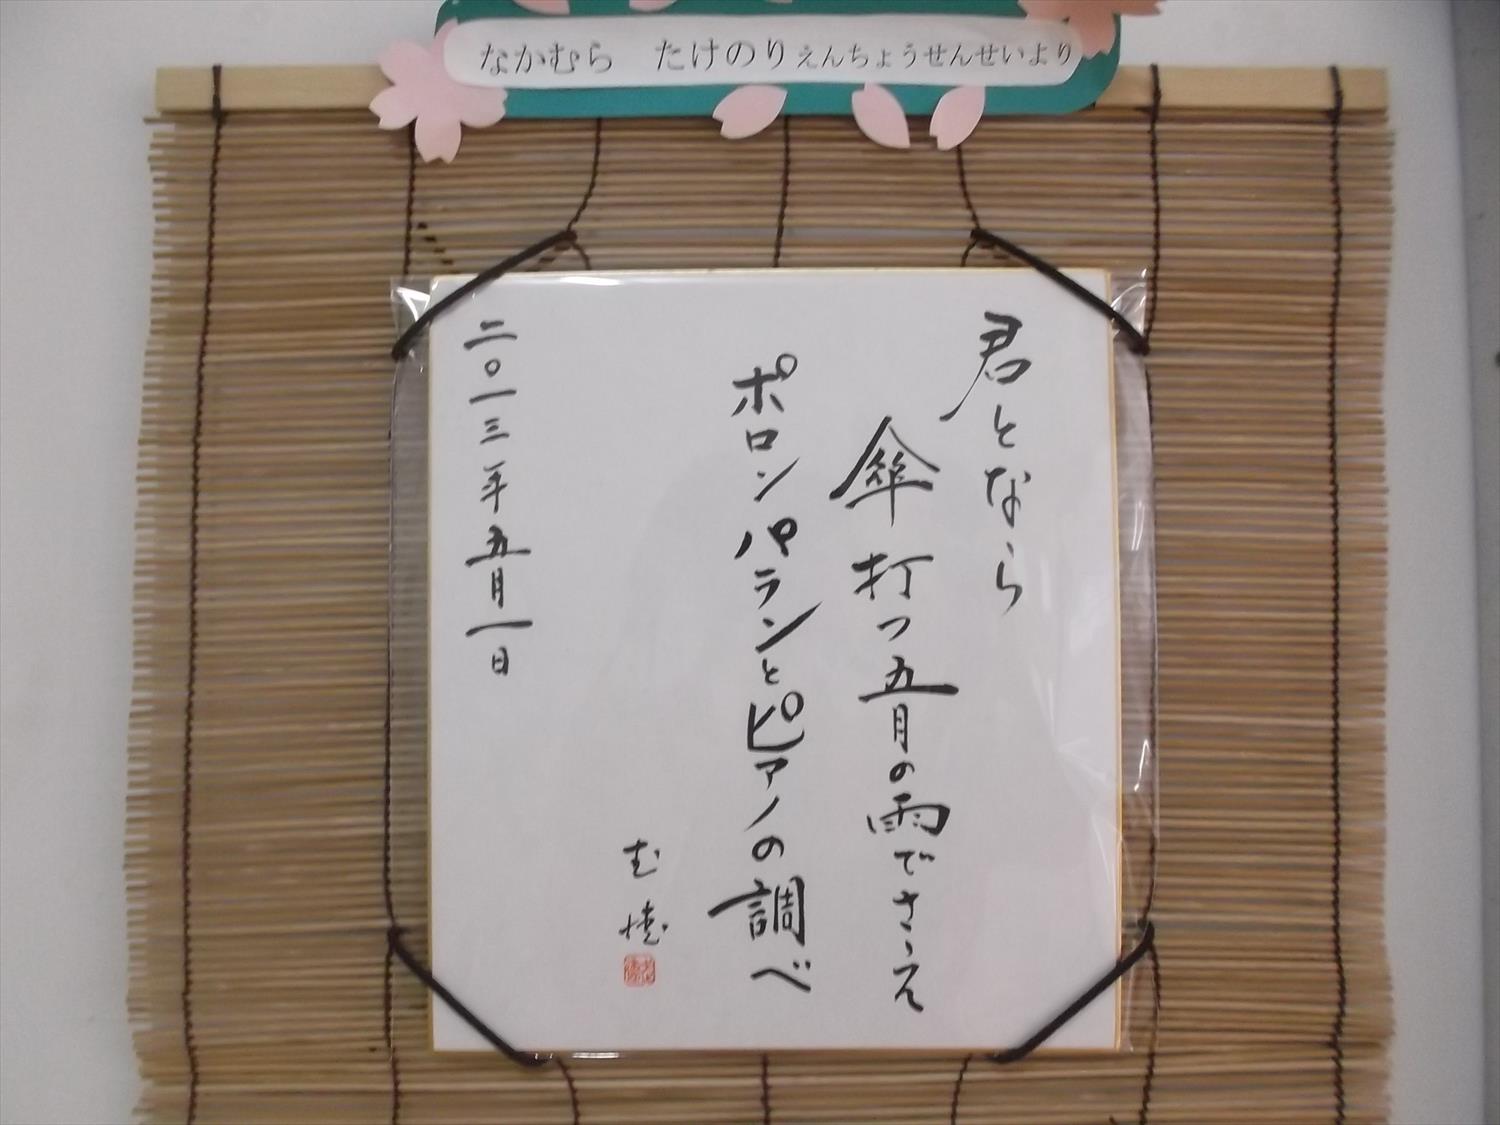 なかむら たけのりえんちょうせんせいより
君となら
傘打つ五月の雨でさえ
ポロンパランとピアノの調べ
武徳
二〇一三年五月一日